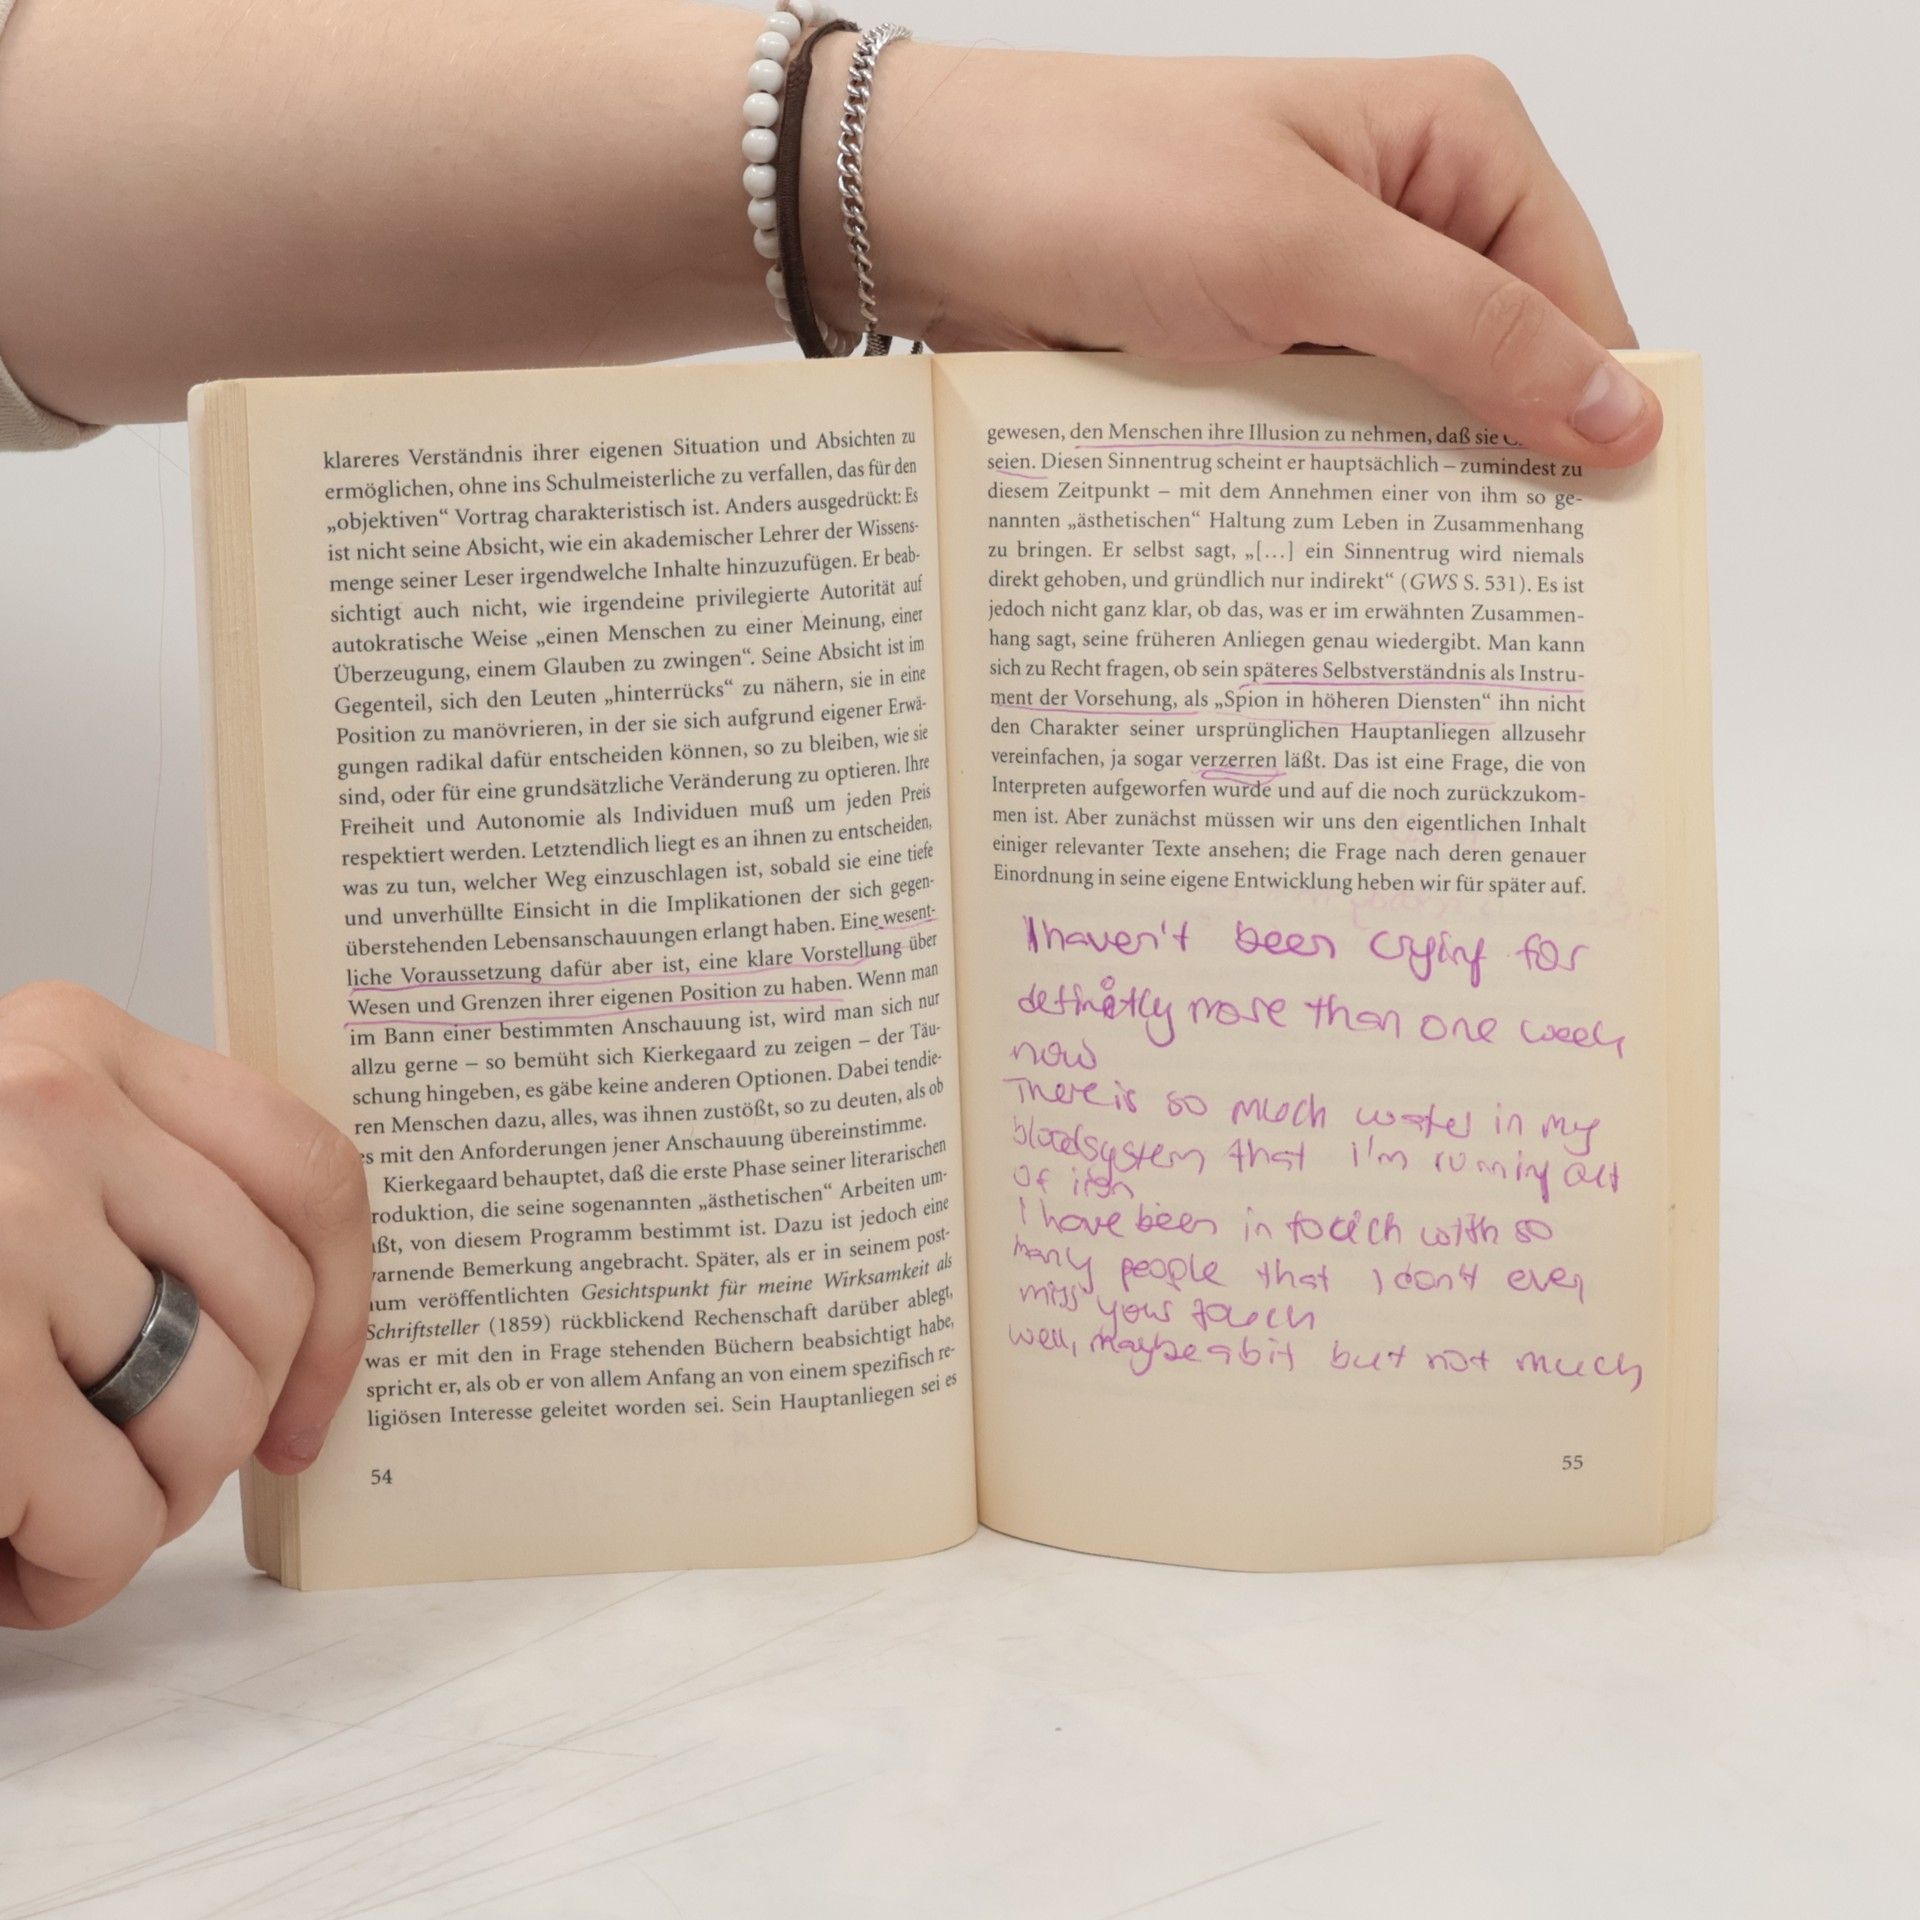 klareres Verständnis ihrer eigenen Situation und Absichten zu
ermöglichen, ohne ins Schulmeisterliche zu verfallen, das für den
„objektiven“ Vortrag charakteristisch ist. Anders ausgedrückt: Es
ist nicht seine Absicht, wie ein akademischer Lehrer der Wissens-
menge seiner Leser irgendwelche Inhalte hinzuzufügen. Er beab-
sichtigt auch nicht, wie irgendeine privilegierte Autorität auf
autokratische Weise „einen Menschen zu einer Meinung, einer
Überzeugung, einem Glauben zu zwingen“. Seine Absicht ist im
Gegenteil, sich den Leuten „hinterrücks“ zu nähern, sie in eine
Position zu manövrieren, in der sie sich aufgrund eigener Erwä-
gungen radikal dafür entscheiden können, so zu bleiben, wie sie
sind, oder für eine grundsätzliche Veränderung zu optieren. Ihre
Freiheit und Autonomie als Individuen muß um jeden Preis
respektiert werden. Letztendlich liegt es an ihnen zu entscheiden,
was zu tun, welcher Weg einzuschlagen ist, sobald sie eine tiefe
und unverhüllte Einsicht in die Implikationen der sich gegen-
überstehenden Lebensanschauungen erlangt haben. Eine wesent-
liche Voraussetzung dafür aber ist, eine klare Vorstellung über
Wesen und Grenzen ihrer eigenen Position zu haben. Wenn man
im Bann einer bestimmten Anschauung ist, wird man sich nur
allzu gerne – so bemüht sich Kierkegaard zu zeigen – der Täu-
schung hingeben, es gäbe keine anderen Optionen. Dabei tendie-
ren Menschen dazu, alles, was ihnen zustößt, so zu deuten, als ob
es mit den Anforderungen jener Anschauung übereinstimme.
Kierkegaard behauptet, daß die erste Phase seiner literarischen
roduktion, die seine sogenannten „ästhetischen“ Arbeiten um-
ßt, von diesem Programm bestimmt ist. Dazu ist jedoch eine
arnende Bemerkung angebracht. Später, als er in seinem post-
um veröffentlichten Gesichtspunkt für meine Wirksamkeit als
Schriftsteller (1859) rückblickend Rechenschaft darüber ablegt,
was er mit den in Frage stehenden Büchern beabsichtigt habe,
spricht er, als ob er von allem Anfang an von einem spezifisch re-
ligiösen Interesse geleitet worden sei. Sein Hauptanliegen sei es
54
gewesen, den Menschen ihre Illusion zu nehmen, daß sie
seien. Diesen Sinnentrug scheint er hauptsächlich – zumindest zu
diesem Zeitpunkt – mit dem Annehmen einer von ihm so ge-
nannten „ästhetischen“ Haltung zum Leben in Zusammenhang
zu bringen. Er selbst sagt, „[…] ein Sinnentrug wird niemals
direkt gehoben, und gründlich nur indirekt“ (GWS S. 531). Es ist
jedoch nicht ganz klar, ob das, was er im erwähnten Zusammen-
hang sagt, seine früheren Anliegen genau wiedergibt. Man kann
sich zu Recht fragen, ob sein späteres Selbstverständnis als Instru-
ment der Vorsehung, als „Spion in höheren Diensten“ ihn nicht
den Charakter seiner ursprünglichen Hauptanliegen allzusehr
vereinfachen, ja sogar verzerren läßt. Das ist eine Frage, die von
Interpreten aufgeworfen wurde und auf die noch zurückzukom-
men ist. Aber zunächst müssen wir uns den eigentlichen Inhalt
einiger relevanter Texte ansehen; die Frage nach deren genauer
Einordnung in seine eigene Entwicklung heben wir für später auf.
I haven't been crying for
definitly more than one week
now
There is so much water in my
bloodsystem that i'm running out
of iron
I have been in touch with so
many people that I don't even
miss your touch
well, maybe a bit but not much
55